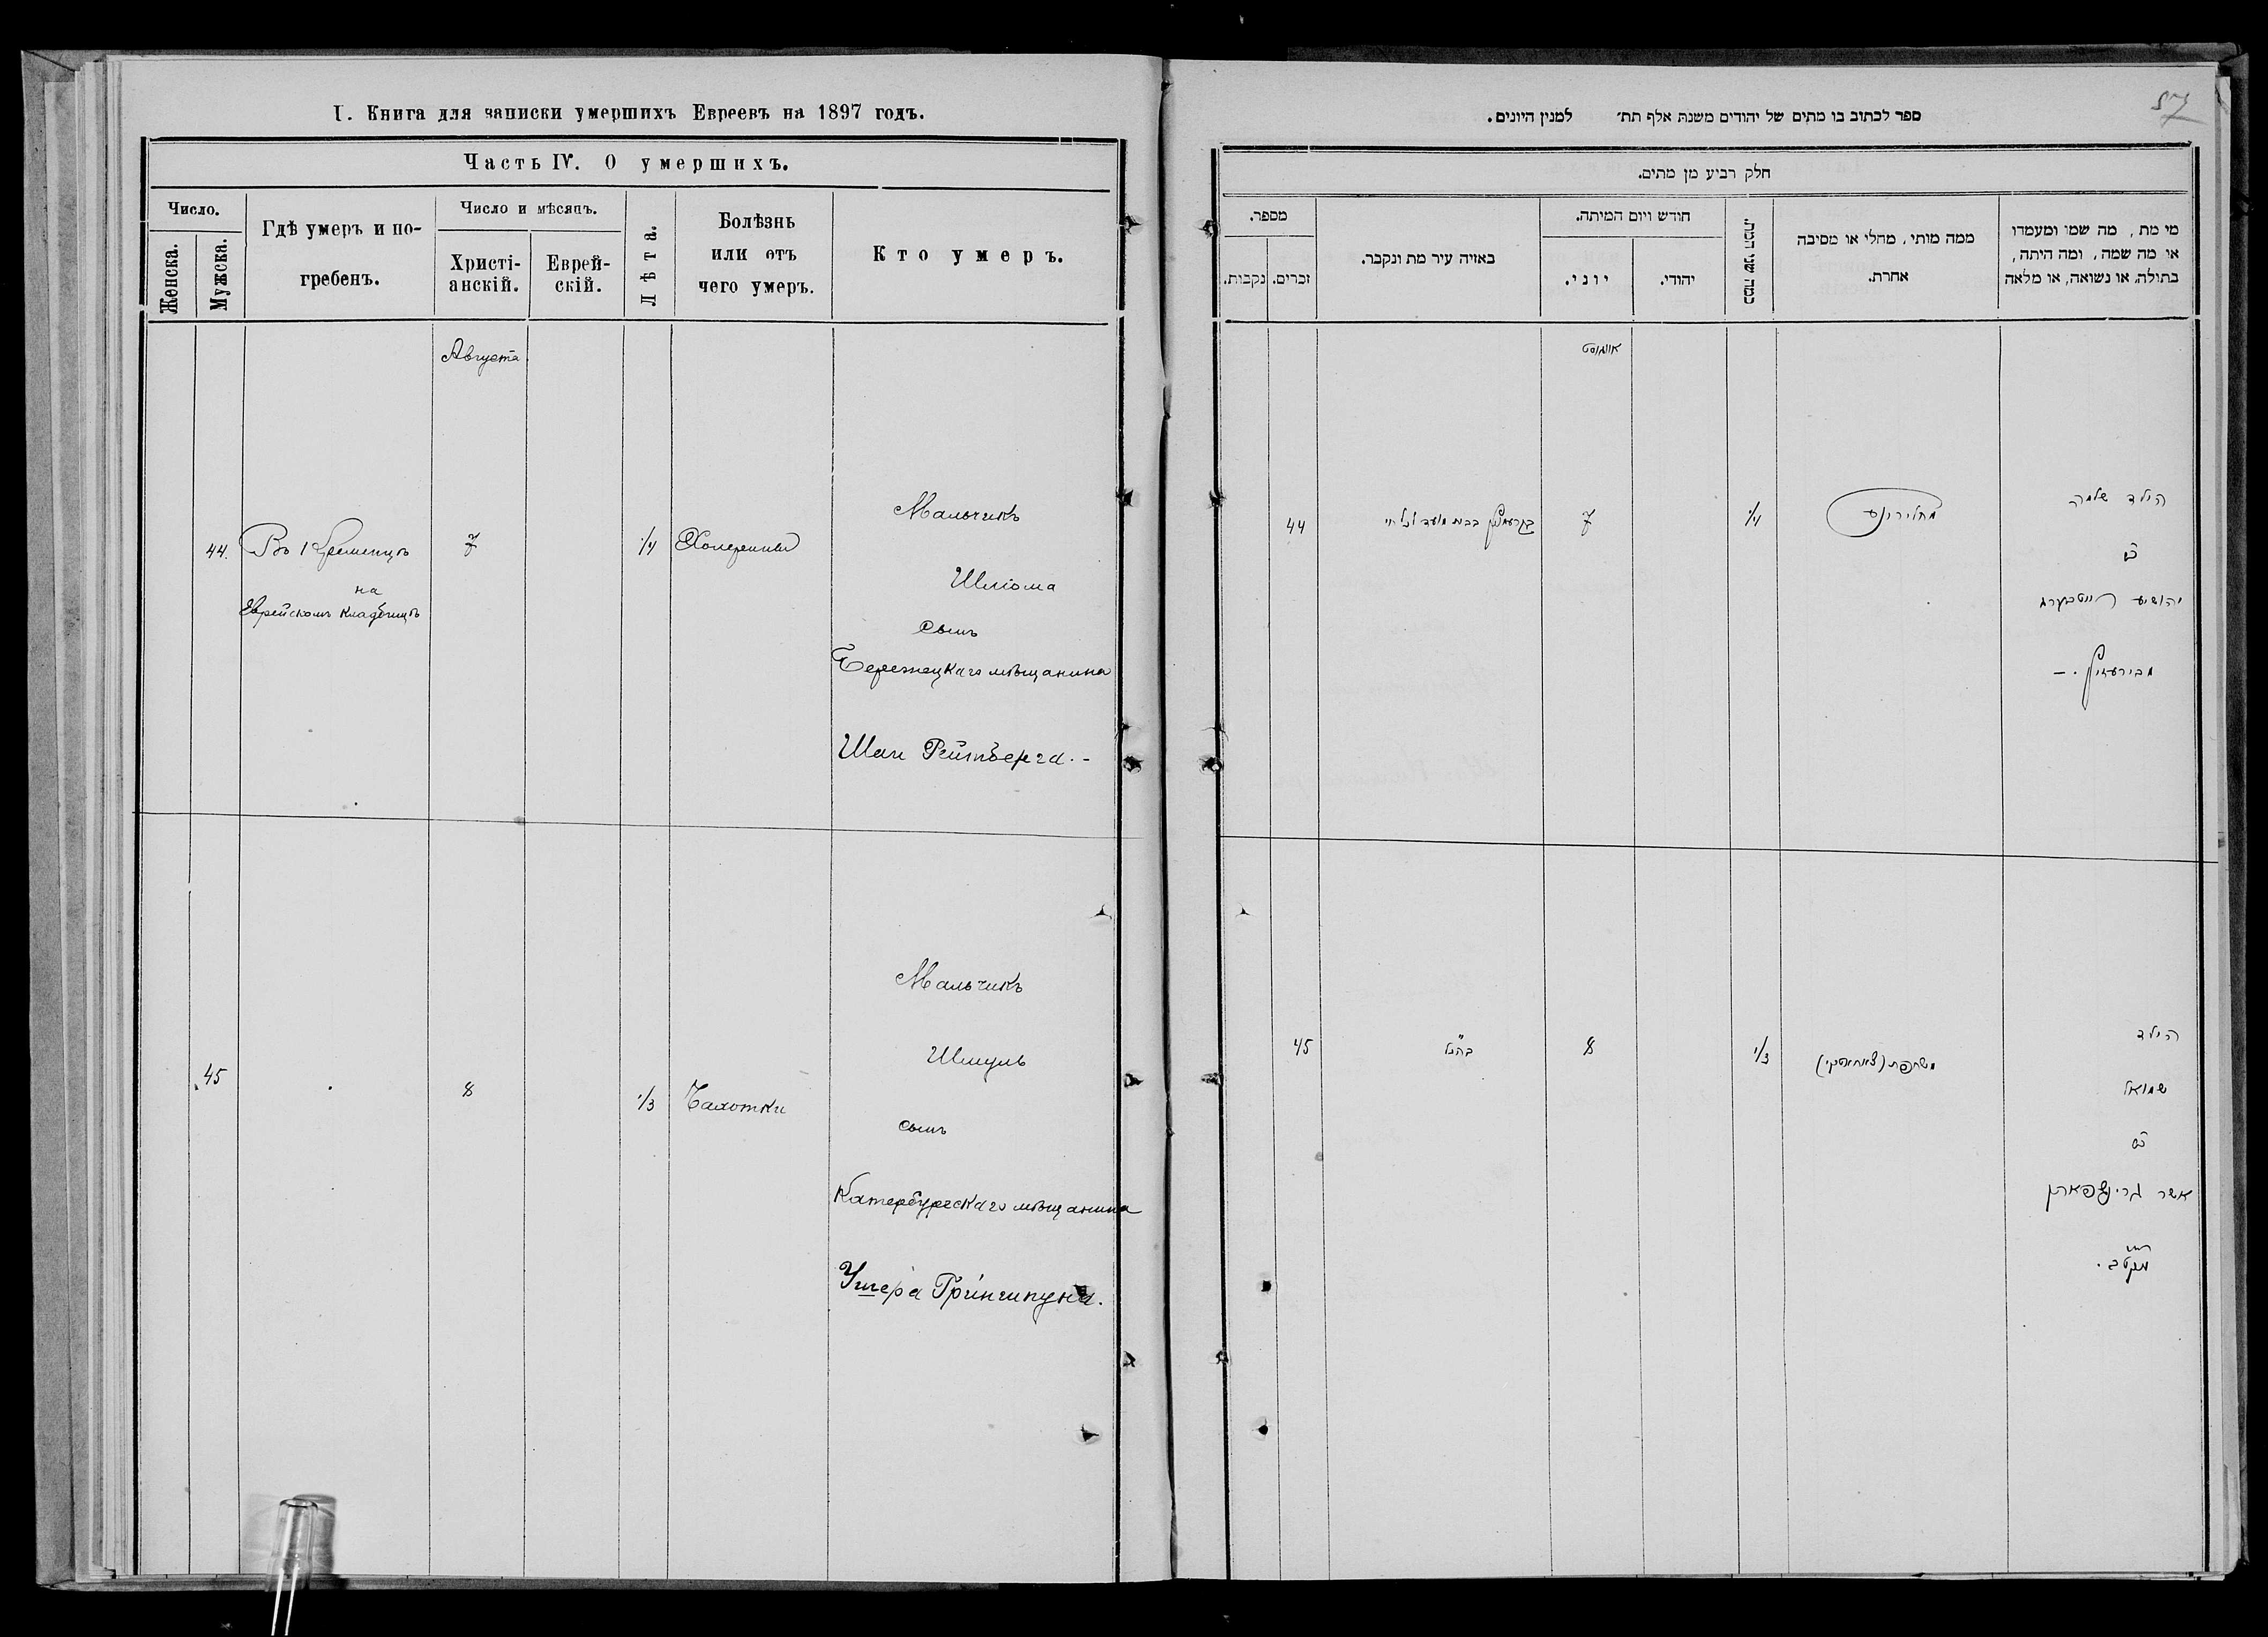 I. Книга для записки умершихъ Евреевъ на 1897 годъ.
Часть IV. О умершихъ.
Число.
Женска.
Мужска.
Гдѣ умеръ и по-
гребенъ.
Число и мѣсяцъ.
Христі-
анскій.
Еврей-
скій.
Лѣта.
Болѣзнь
или отъ
чего умеръ.
Кто умеръ.
Августа
44.
Въ Кременцѣ
на
Еврейскомъ кладбищѣ
7
1/4
Мальчикъ
Шлiома
сынъ
Бережецкаго мѣщанина
Рейтберга.-
45
8
1/3
Чахотки
Мальчикъ
Шмуль
сынъ
Катербургскаго мѣщанина
Ушера Гриншпуна.
57
ספר לכתוב בו מתים של יהודים משנת אלף תת׳ למנין היונים.
חלק רביע מן מתים.
מספר.
נקבות.
זכרים.
באיזה עיר מת ונקבר.
חודש ויום המיתה.
יוני.
יהודי.
כמה שני המת.
ממה מותי, מחלי או מסיבה
אחרת.
מי מת, מה שמו ומעמדו
או מה שמה, ומה היתה,
בתולה, או נשואה, או מלאה
אויגוסט
44
7
1/4
הילד שלמה
יהושיע רייטבערג
45
בהנ״ל
8
1/3
הילד
שמואל
אשר